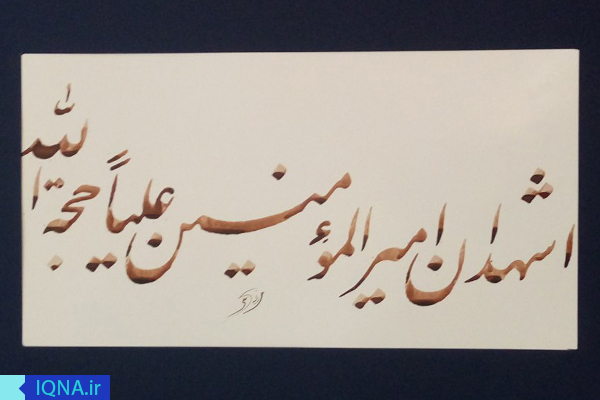 اشهد ان امیر المؤمنین علیاً حجة الله
IQNA.ir